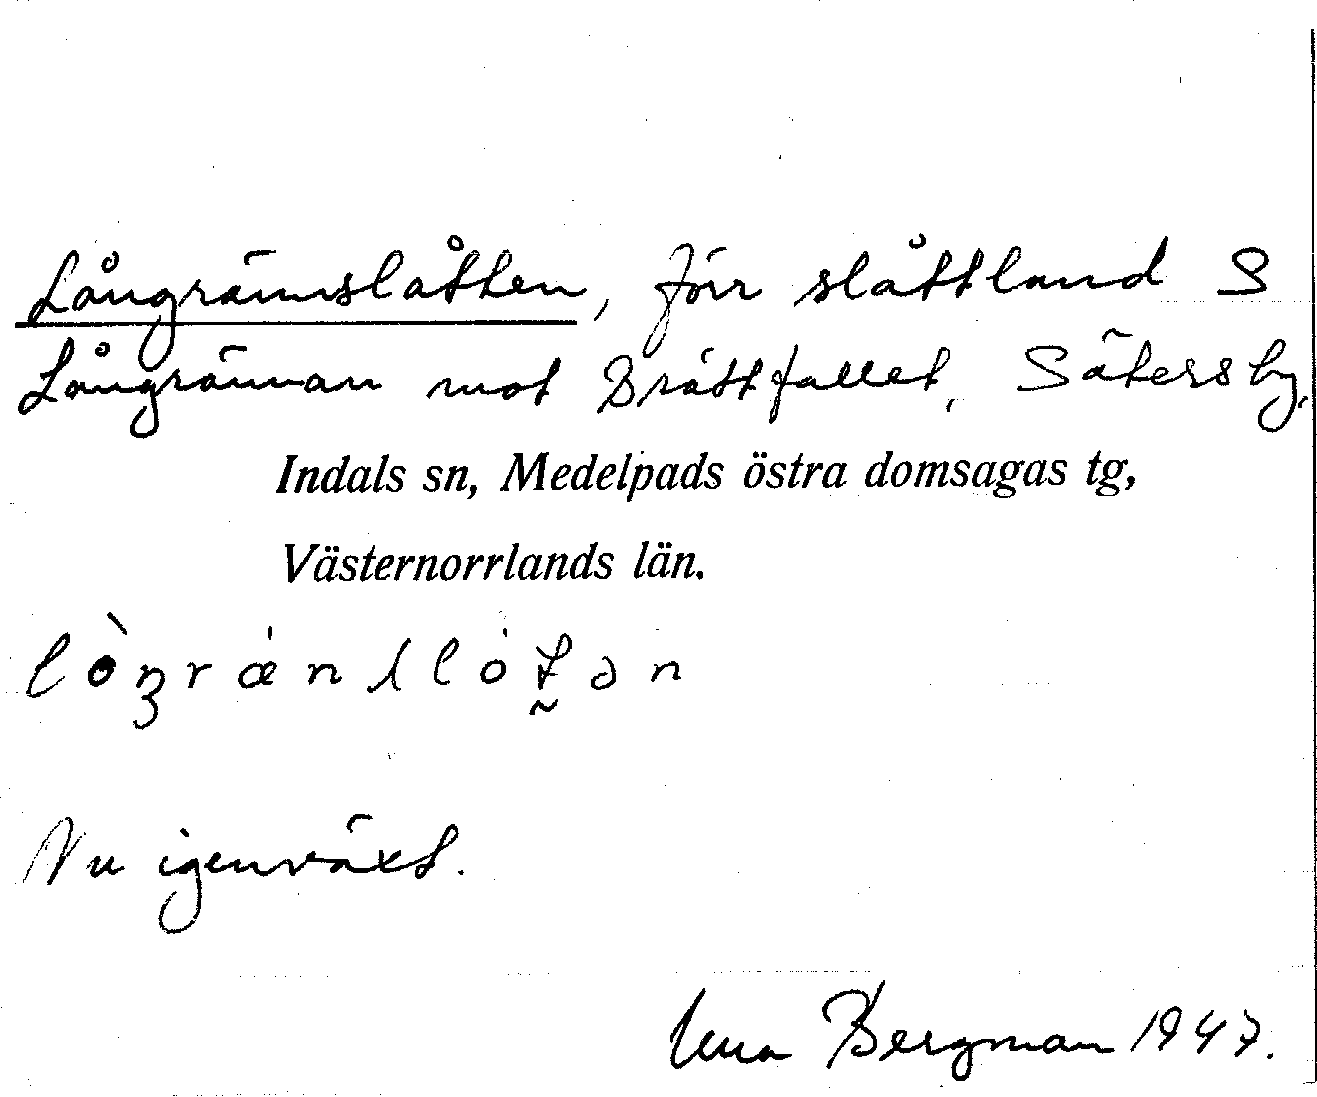 Långrännslåtten, förr slåttland S
Långrännan mot Bråttfallet, Sätersby,
Indals sn, Medelpads östra domsagas tg,
Västernorrlands län.
Nu igenväxt.
Bergman 1947.